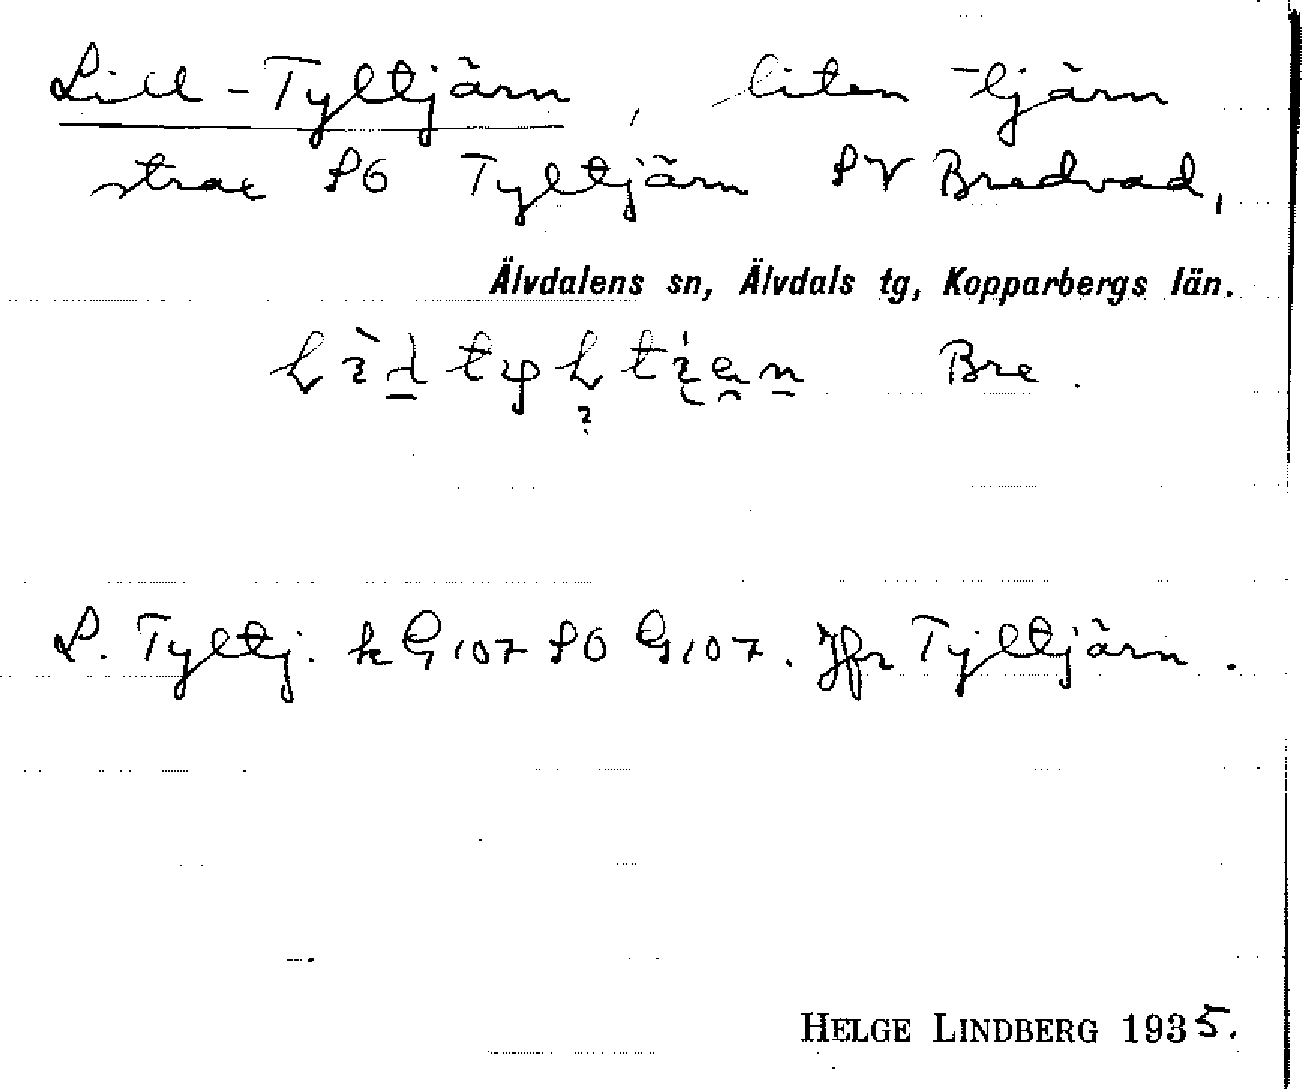 Lill-Tyltjärn, liten tjärn
strax SO Tyltjärn SV Bredvad,
Älvdalens sn, Älvdals tg, Kopparbergs län.
Bre.
L. Tyltj. k G 107 SO G 107. Jfr Tyltjärn.
HELGE LINDBERG 1935.